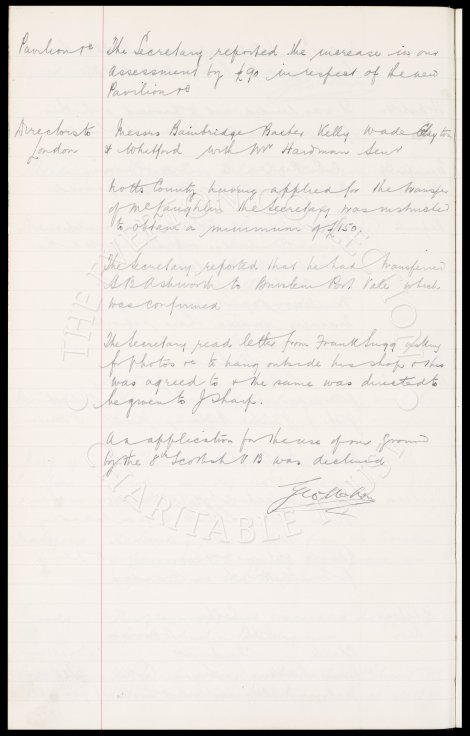 Pavilion &c The Secretary reported the increase in our
assessment by £90 in respect of the new
Pavilion &c
Directors to Messrs Bainbridge Baxter Kelly Wade Clayton
London & Whitford with Mr Hardman Senr
Notts County having applied for the transfer
of McLaughlin the Secretary was instructed
to obtain a minimum of £150.
The Secretary reported that he had transferred
S B Ashworth to Burslem Port Vale which
was confirmed
The Secretary read letter from Frank Sugg asking
for photos &c to hang outside his shop & this
was agreed to & the same was directed to
be given to J Sharp.
An application for the use of our Ground
by the 8th Scottish V B was declined
Geo Mahon
THE EVERTON COLLECTION
CHARITABLE TRUST